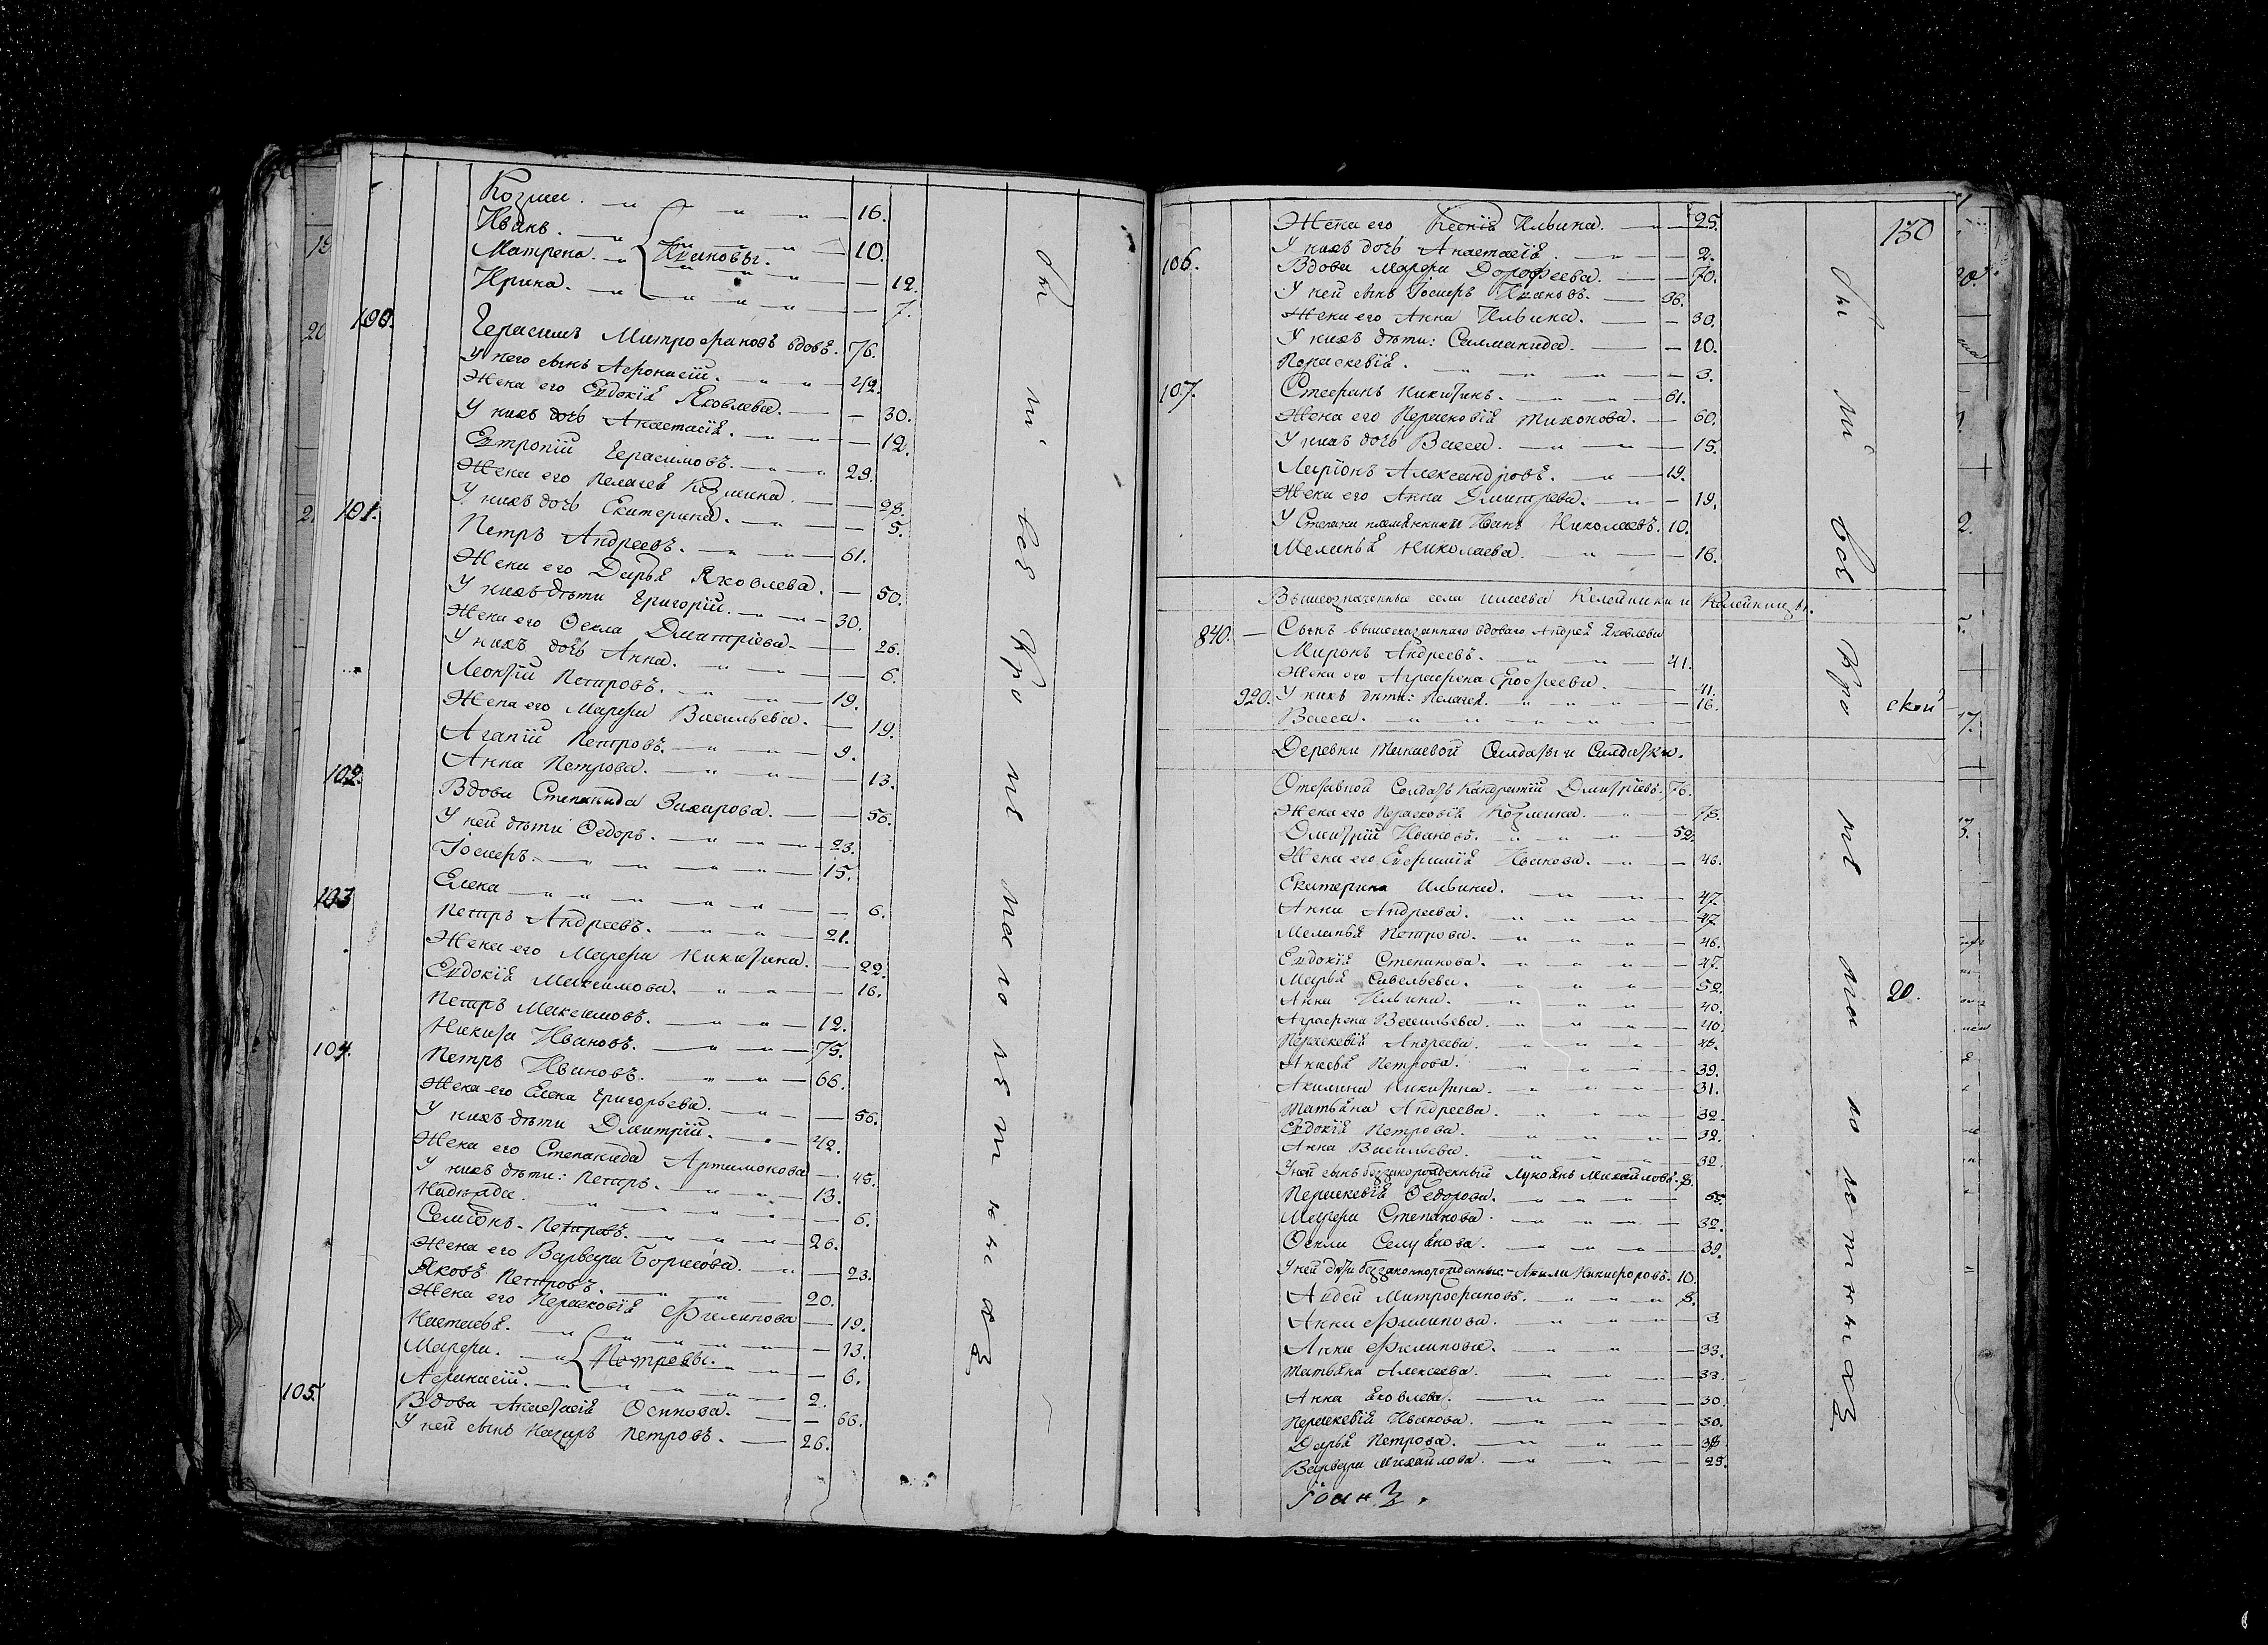 Козма. 16.
Иванъ. 10.
Матрена. Ивановы. 12.
Ирина. 7.
100. Герасимъ Митрофановъ вдовъ. 76.
У него сынъ Афонасій. 42.
Жена его Евдокія Яковлева. 30.
У нихъ дочь Анастасія. 12.
Евтропій Герасимовъ. 29.
Жена его Пелагея Козмина. 28.
У нихъ дочь Екатерина. 5.
101. Петръ Андреевъ. 61.
Жена его Дарья Яковлева. 50.
У нихъ дѣти Григорій. 30.
Жена его Ѳекла Дмитріева. 26.
У нихъ дочь Анна. 6.
Леонтій Петровъ. 19.
Жена его Марфа Васильева. 19.
Агапій Петровъ. 9.
Анна Петрова. 13.
102. Вдова Степанида Захарова. 56.
У ней дѣти Ѳедоръ. 23.
Іосифъ. 15.
Елена 6.
103. Петръ Андреевъ. 21.
Жена его Марфа Никитина. 22.
Евдокія Максимова. 16.
Петръ Максимовъ. 12.
Никита Ивановъ. 75.
104. Петръ Ивановъ. 66.
Жена его Елена Григорьева. 56.
У нихъ дѣти Дмитрій. 42.
Жена его Степанида Артимонова 45.
У нихъ дѣти: Петръ. 13.
Надежда. 6.
Семіонъ Петровъ. 26.
Жена его Варвара Борисова. 23.
Яковъ Петровъ. 20.
Жена его Параскевія Филипова 19.
Настасья. 13.
Марфа. Петровы. 6.
Афанасій. 2.
105. Вдова Анастасія Осипова. 66.
У ней сынъ Петровъ. 26.
130
Жена его Ильина. 25.
У нихъ дочь Анастасія. 2.
106. Вдова Марфа Дорофеева. 70.
У ней сынъ Іосифъ Ивановъ. 36.
Жена его Анна Ильина. 30.
У нихъ дѣти: Саламанида. 10.
Параскевія. 3.
107. Стефанъ Никитинъ. 61.
Жена его Параскевія Тихонова. 60.
У нихъ дочь Васса. 15.
Ларіонъ Александровъ. 19.
Жена его Анна Дмитрева. 19.
У Степана племянники Иванъ Николаевъ. 10.
Меланья Николаева. 16.
Вышеозначенные села Келейники и Келейницы.
840. Сынъ вышесказаннаго вдоваго Андрея Яковлева
Миронъ Андреевъ. 41.
Жена его Аграфена Ерофеева. 41.
920. У нихъ дѣти: Пелагея. 16.
Васса.
Деревни Солдаты и Солдатки.
Отставной Солдатъ Кандратій Дмитріевъ. 76.
Жена его Параскевія Козмина. 75.
Дмитрій Ивановъ. 52.
Жена его Евфимія Иванова. 46.
Екатерина Ильина. 47.
Анна Андреева. 47.
Меланья Петрова. 46.
Евдокія Степанова. 47.
Марья Савельева. 52.
Анна Ильина. 40.
Аграфена Васильева. 40.
Параскевія Андреева. 45.
Петрова. 39.
Акилина Никитина. 31.
Татьяна Андреева. 32.
Евдокія Петрова. 32.
Анна Васильева. 32.
У ней сынъ беззаконорожденный Лукоянъ Михайловъ. 8.
Параскевія Ѳедорова. 65.
Марфа Степанова. 32.
Ѳекла 39.
У ней дѣти беззаконнорожденные: Никифоровъ. 10.
Авдей Митрофановъ. 8.
Анна Филипова. 3.
Анна Филипова. 33.
Татьяна Алексеева. 33.
Анна Яковлева. 30.
Параскевія Иванова. 30.
Дарья Петрова. 38.
Варвара Михайлова. 25.
ской
20.